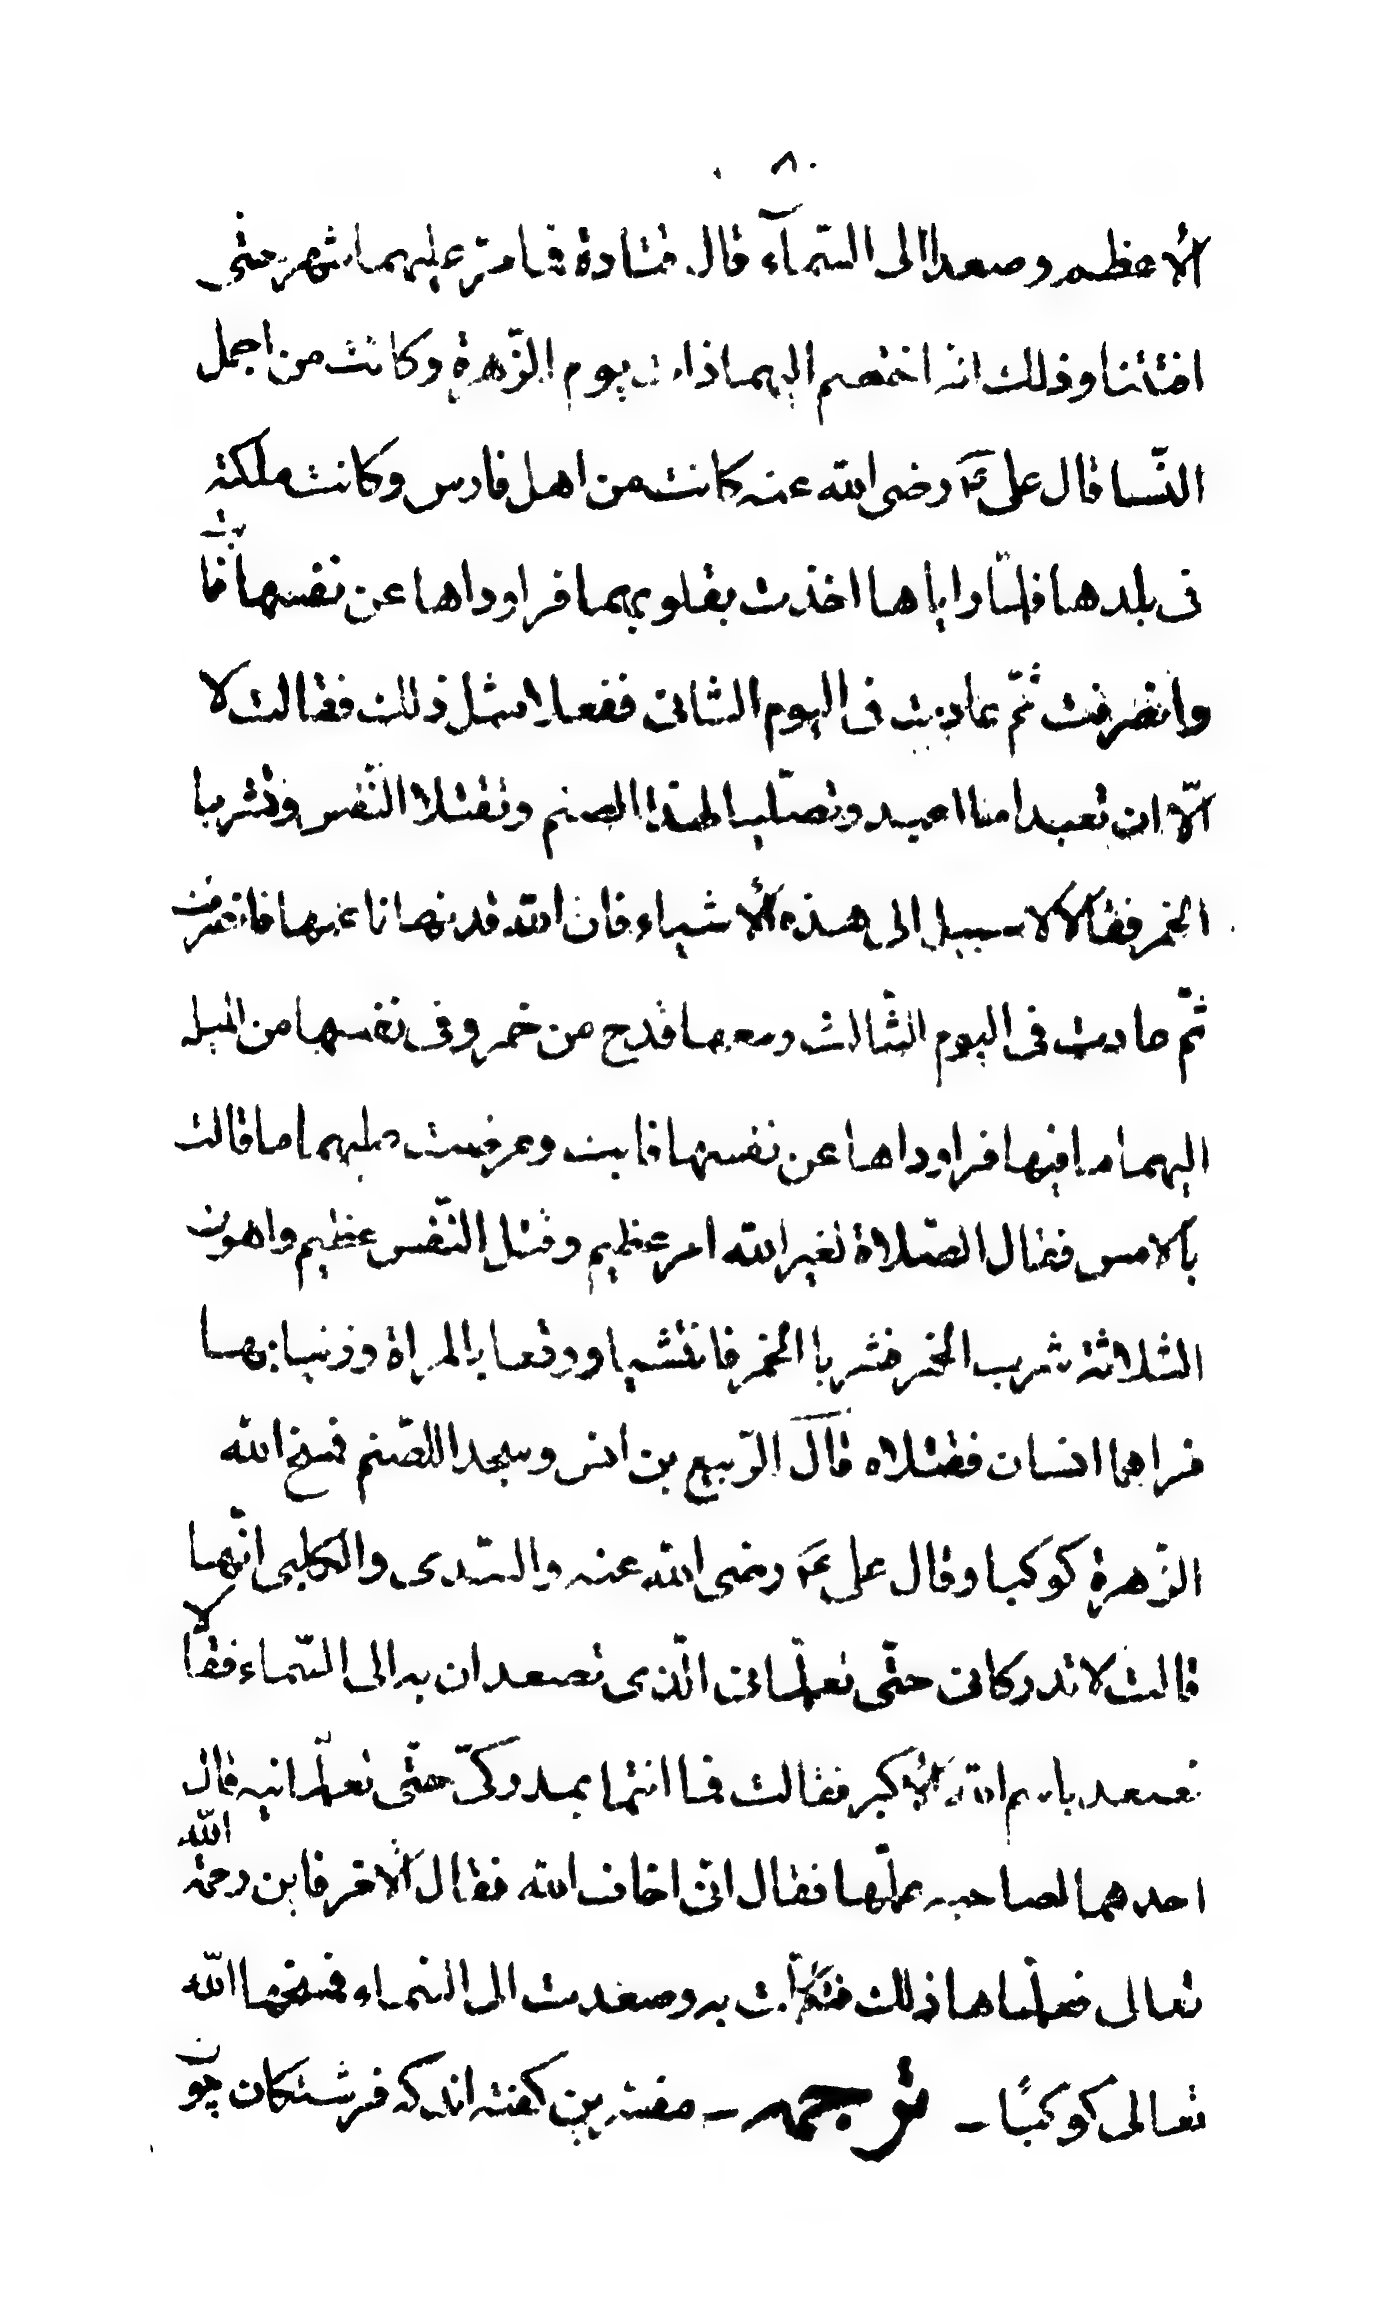 ٨٠
الأعظم وصعدا الى السّمآء قال قتادة فما مرّ عليهما شهر حتّى
افتتنا وذلك انّه اختصم اليهما ذات يوم الزّهرة وكانت من اجمل
النّسا قال علىّ كرّم رضى الله عنه كانت من اهل فارس وكانت ملكة
فى بلدها فلمّا راياها اخذت بقلوبهما فراوداها عن نفسها فابت
وانصرفت ثمّ عادت فى اليوم الثانى ففعلا مثل ذلك فقالت لا
الّا ان تعبدا ما اعبد وتصلّيا لهذا الصنم وتقتلا النّفس وتشربا
الخمر فقالا لا سبيل الى هذه الأشياء فان الله قد نهانا عنها فانصرفت
ثمّ عادت فى اليوم الثّالث ومعها قدح من خمر وفى نفسها من الميله
اليهما ما فيها فراوداها عن نفسها فابت وعرضت عليهما ما قالت
بالامس فقال الصّلاة لغير الله امر عظيم وقتل النّفس عظيم واهون
الثلاثة شرب الخمر فشربا الخمر فانتشيا ووقعا بالمراة وزنيا بها
فراهما انسان فقتلاه قال الرّبيع بن انس وسجدا للصّنم فمسخ الله
الزّهرة كوكبا وقال على رضى الله عنه والسّدى والكلبى انّها
قالت لا تدركانى حتّى تعلّمانى الّذى تصعدان به الى السّماء فقالا
نصعد باسم الله الأكبر فقالت فما انتما بمدركىّ حتّى تعلّمانيه قال
احدهما لصاحبه علّمها فقال انّى اخاف الله فقال الآخر فاين رحمة الله
تعالى فعلّماها ذلك فتكلّمت به وصعدت الى السّماء فمسخها الله
تعالى كوكبًا – ترجمه – مفسّرين كفته اند كه فرشتكان چون